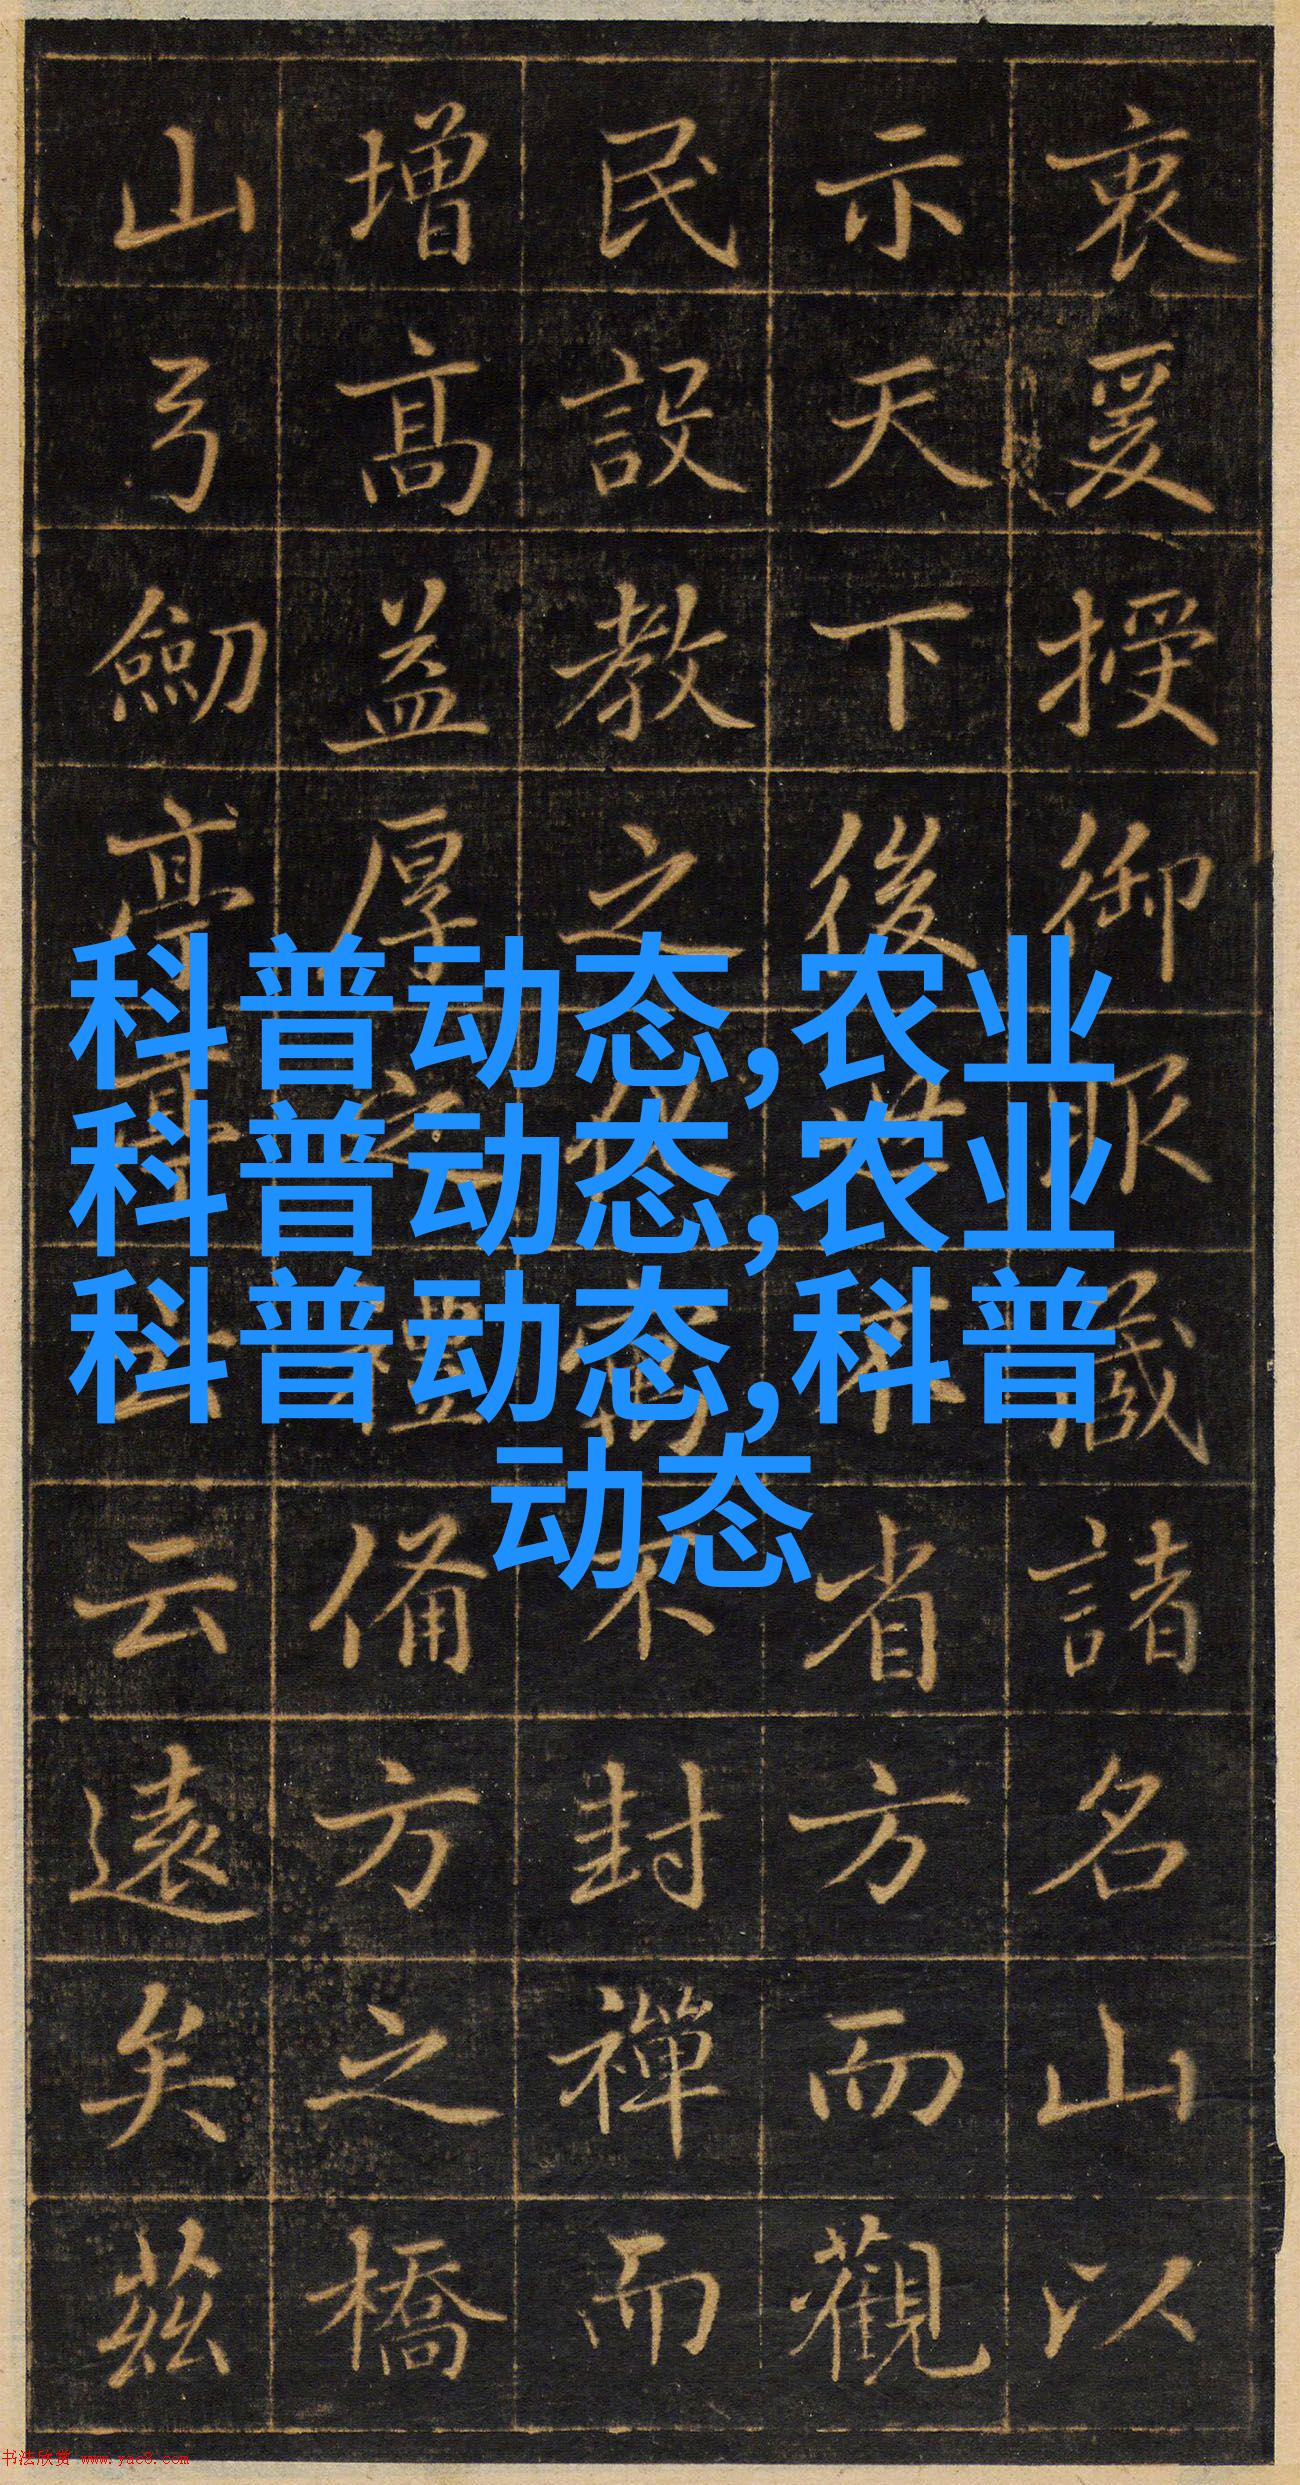 衷爰授御服藏諸名山以
示天下後世省方而觀
民設教之不封禪而
增高益厚之禮備方之橋
山弓劒亭云遠矣茲
科普动态,农业
科普动态,农业
科普动态,科普
动态
书法欣赏 www.yac8.com